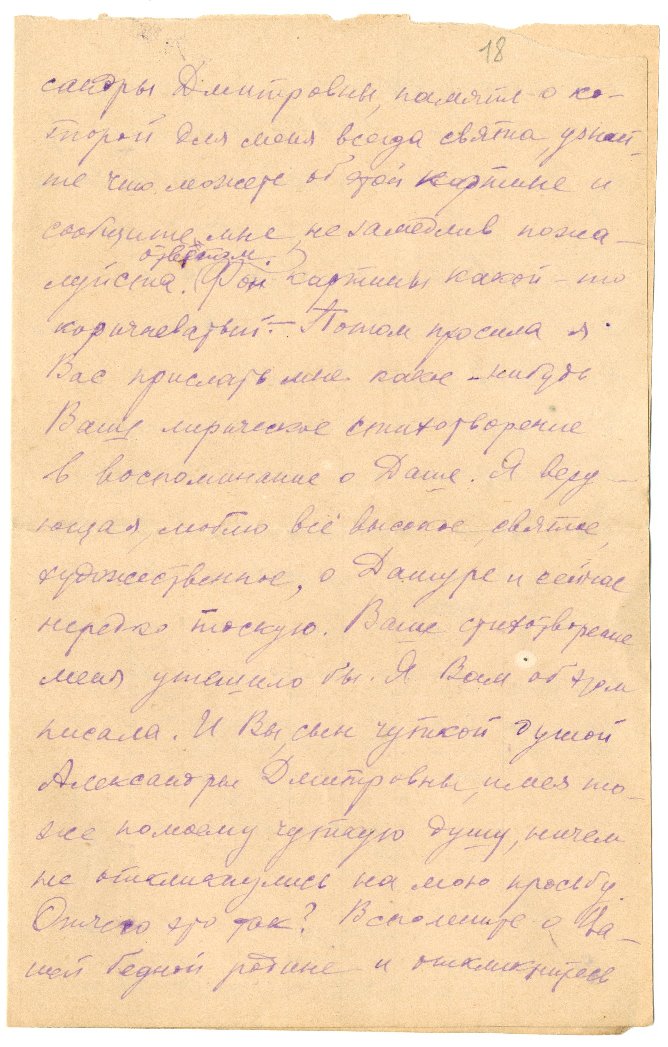 18
сандры Дмитровны, память о ко-
торой для меня всегда свята узнай-
те что можете об этой картине и
сообщите мне, не замедлив пожа-
ответом.
луйста. (Фон картины какой-то
коричневатый. – Потом просила я
Вас прислать мне какое-нибудь
Ваше лирическое стихотворение
в воспоминание о Даше. Я веру-
ющая, люблю всё высокое, святое,
художественное, о Дашуре и сейчас
нередко тоскую. Ваше стихотворение
меня утешило бы. Я Вам об этом
писала. И Вы, сын чуткой душой
Александры Дмитровны, имея то-
же помоему чуткую душу, ничем
не откликнулись на мою просьбу.
Отчего это так? Вспомните о Ва-
шей бедной родине и откликнитесь